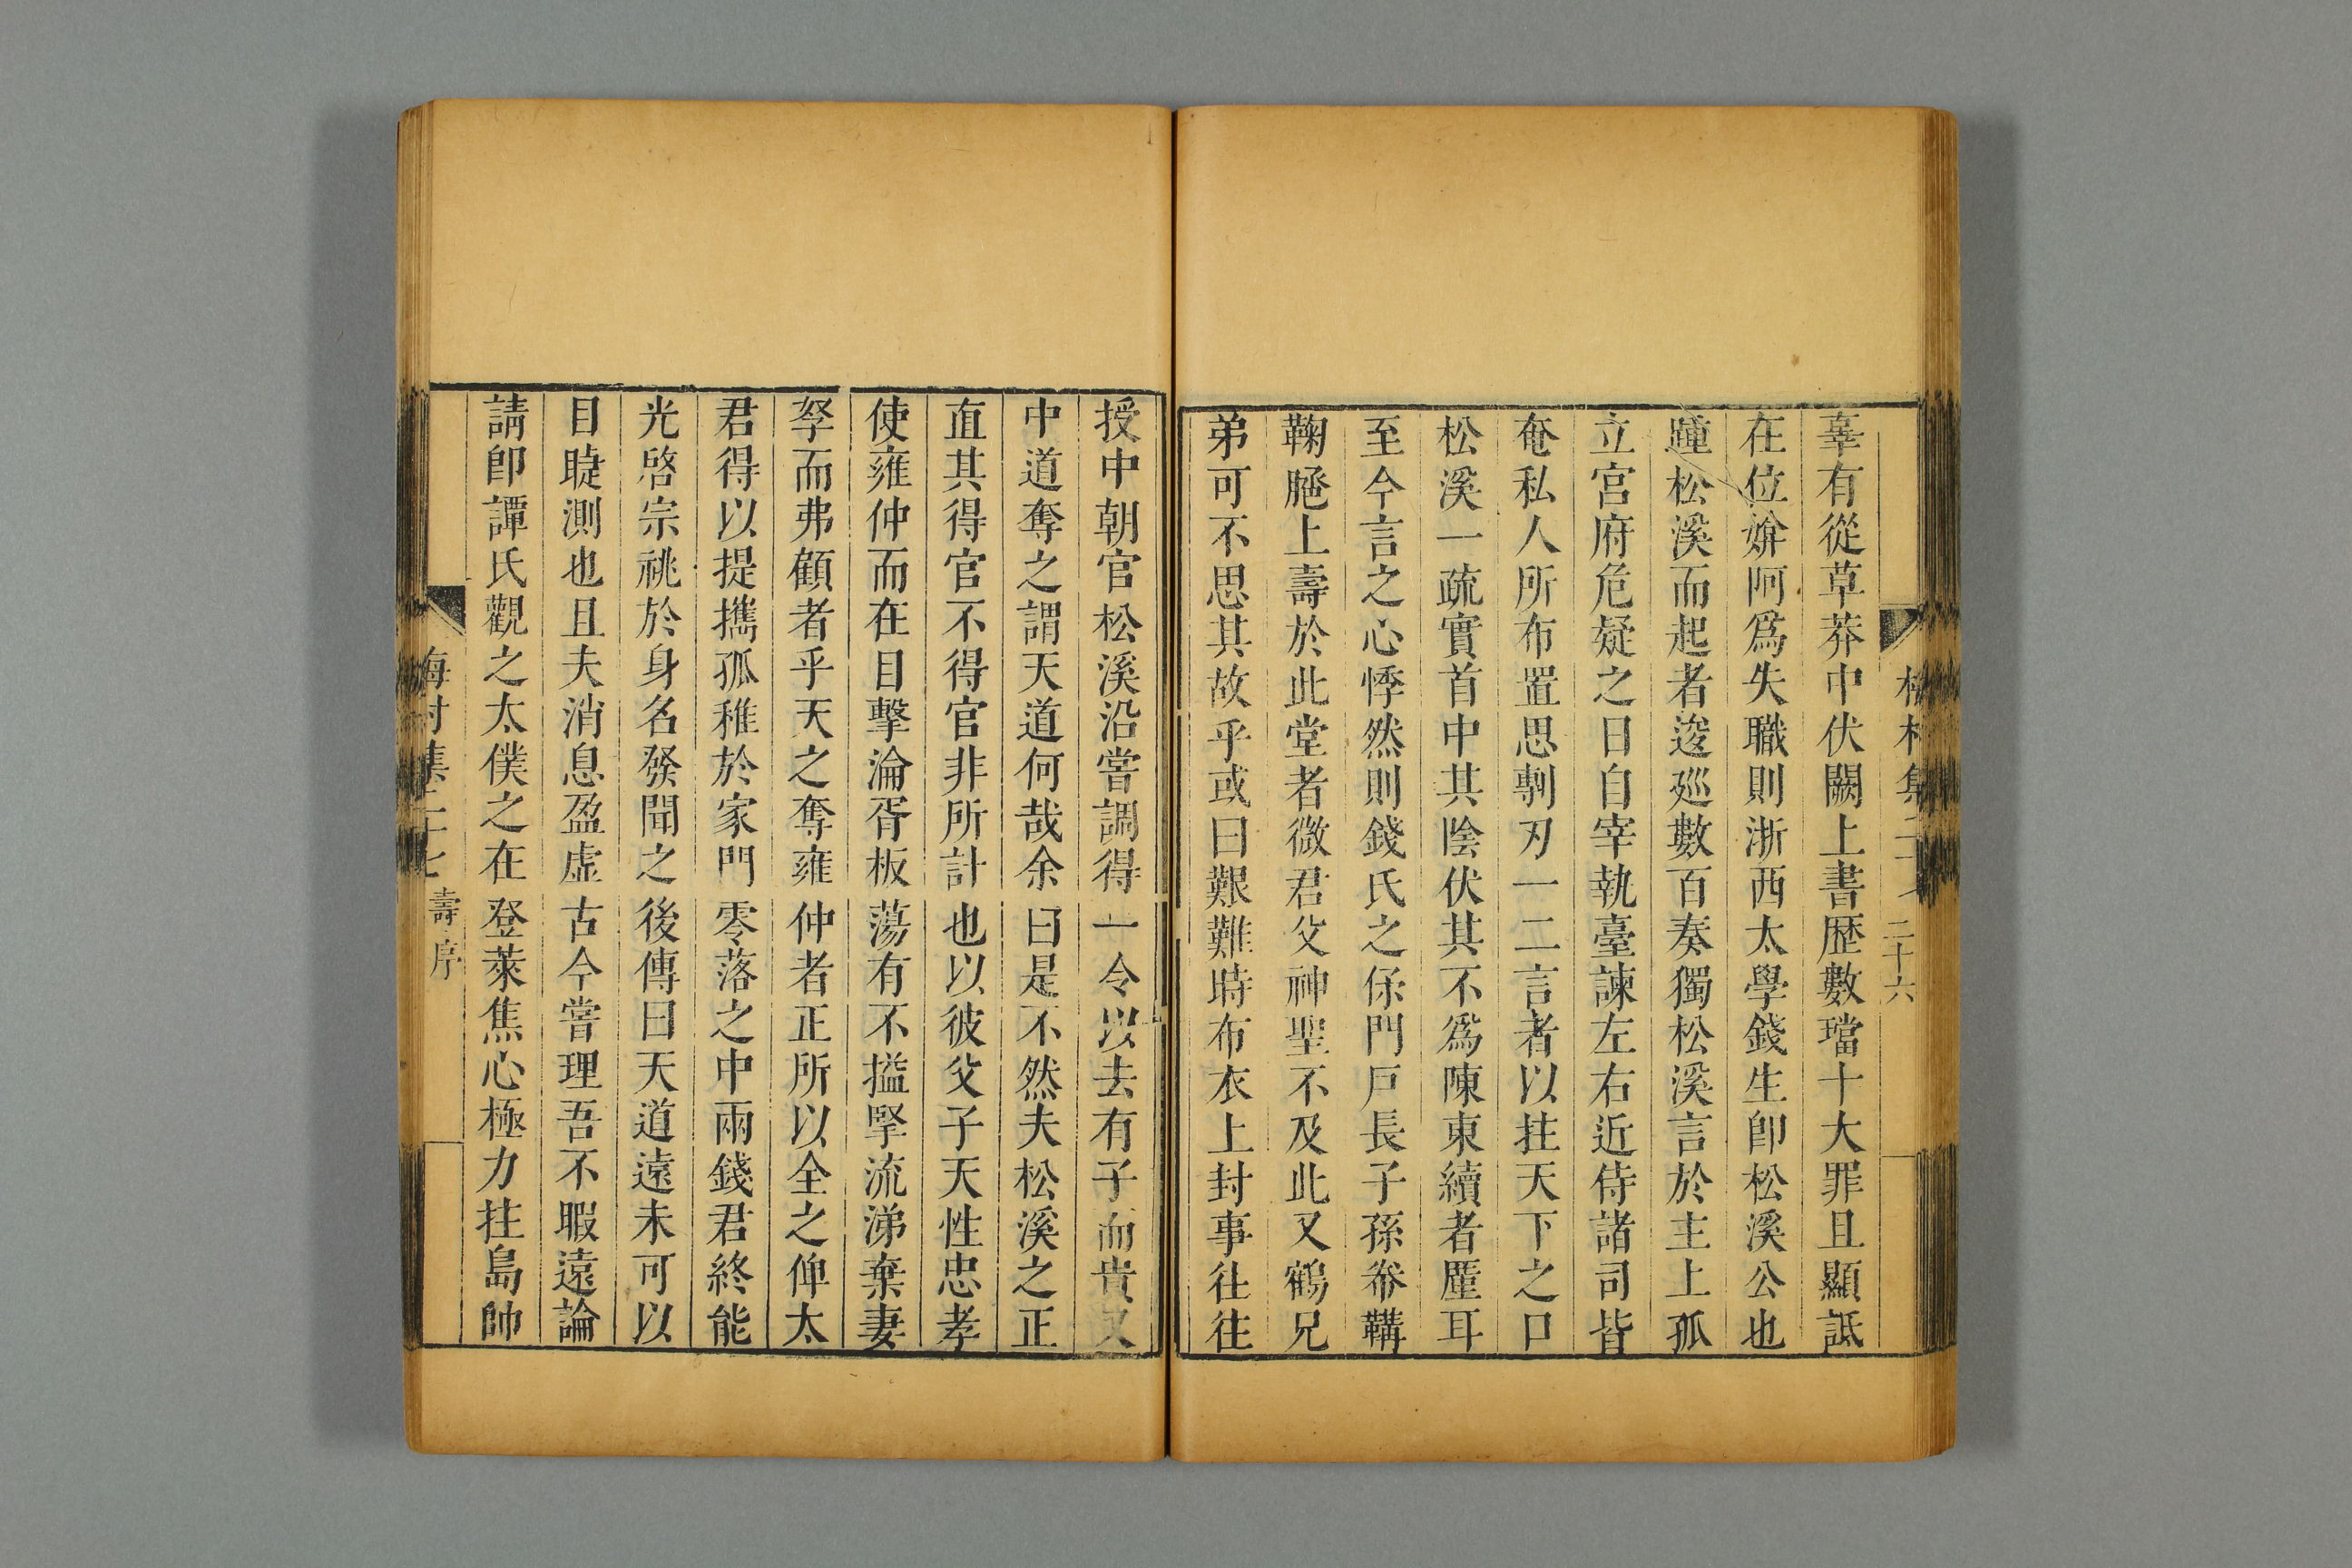 辜有從草莽中伏闕上書歴數璫十大罪且顯詆
在位媕阿爲失職則浙西太學錢生卽松溪公也
踵松溪而起者逡廵數百奏獨松溪言於主上孤
立宮府危疑之日自宰執臺諫左右近侍諸司皆
奄私人所布置思剸刃一二言者以拄天下之口
松溪一疏實首中其陰伏其不爲陳東續者廑耳
至今言之心悸然則錢氏之係門戸長子孫帣鞲
鞠䠆上壽於此堂者微君父神聖不及此又鶴兄
弟可不思其故乎或曰艱難時布衣上封事往往
二十六
授中朝官松溪沿嘗調得一令以去有子而貴又
中道奪之謂天道何哉余曰是不然夫松溪之正
直其得官不得官非所計也以彼父子天性忠孝
使雍仲而在目擊淪胥板蕩有不搤掔流涕棄妻
孥而弗顧者乎天之奪雍仲者正所以全之俾太
君得以提攜孤稚於家門零落之中兩錢君終能
光啓宗祧於身名發聞之後傳曰天道遠未可以
目睫測也且夫消息盈虛古今嘗理吾不暇遠論
請卽譚氏觀之太僕之在登萊焦心極力拄島帥
梅村集二十七 壽序